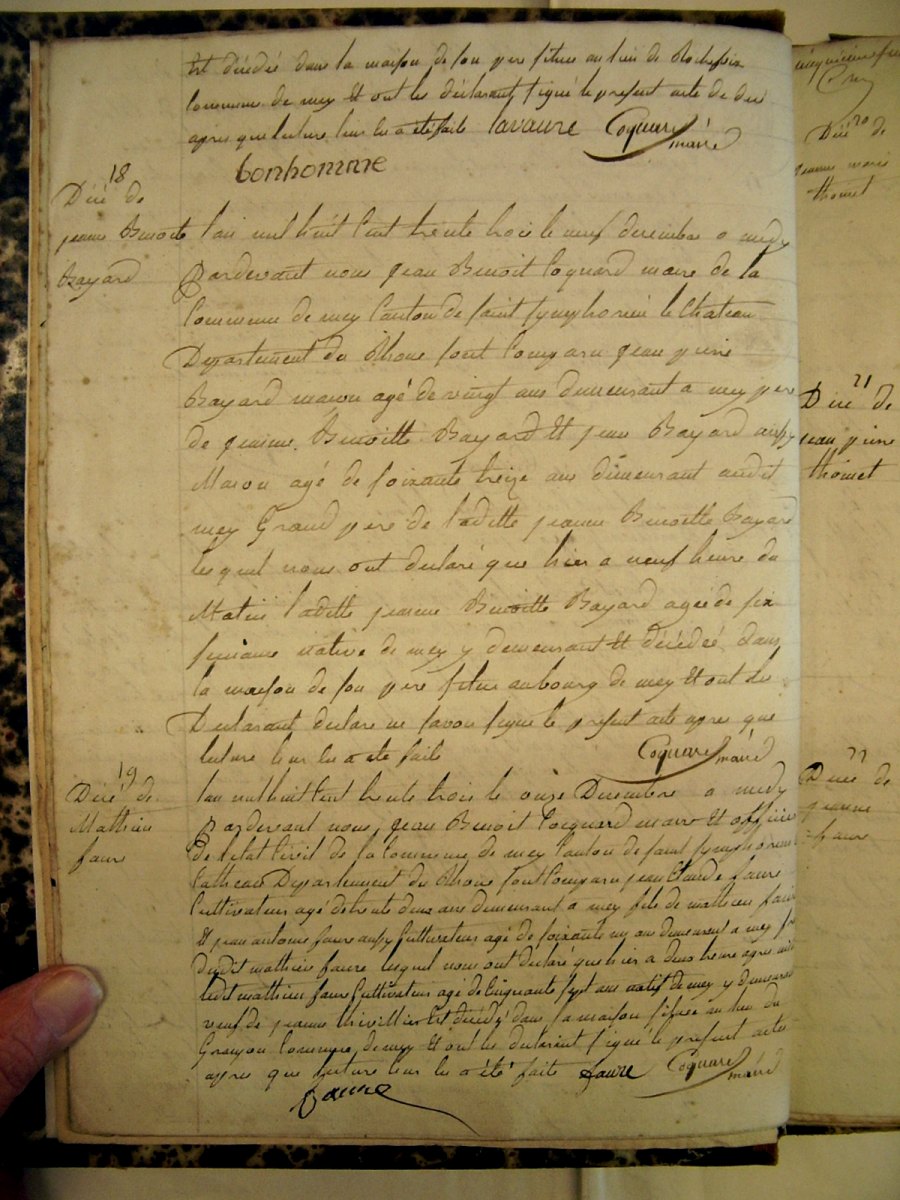 Est décédé dans la maison de son pere situe au lieu de Rochefoix
Commune de mey Et ont les déclarant signé le present acte de
apres que lecture leur lu a eté faite lavaure Coquard maire
bonhomme
18
Décé de
jeanne Benoite
Bayard
lan mil huit Cent trente trois le neuf decembre a midy
Pardevant nous jean Benoit Coquard maire de la
Commune de mey Canton de saint symphorien le Chateau
Departement du Rhone sont Comparu jean pierre
Bayard macon agé de vingt ans demeurant a mey pere
de jeanne Benoitte Bayard Et jean Bayard aussy
Macon agé de soixante treize ans demeurant audit
mey Grand pere de laditte jeanne Benoitte Bayard
lesquel nous ont declaré que hier a neuf heure du
Matin laditte jeanne Benoitte Bayard agée de six
semaine native de mey y demeurant Et décédée dans
la maison de son pere situe au bourg de mey Et ont les
Declarant declare ne savoir signe le present acte apres que
lecture leur lu a ete faite Coquard maire
19
Décé de
Mathieu
faure
lan mil huit Cent trente trois le onze Decembre a midy
Pardevant nous jean Benoit Coquard maire Et officier
De letat Civil de la Commune de mey Canton de saint symphorien
Cathean Departement du Rhone sont Comparu jean Claude faure
Cultivateur agé de trente deux ans demeurant a mey fils de mathieu faure
Et jean antoine faure aussy Cultivateur agé de soixante un ans demeurant a mey
dudit mathieu faure lesquel nous ont declaré que hier a deux heure apres midi
ledit mathieu faure Cultivateur agé de Cinquante sept ans natif de mey y demeurant
veuf de jeanne thivillier Est décédé dans sa maison situee au lieu du
Commune de mey Et ont les declarant signé le present acte
apres que lecture leur lu a été faite faure Coquard maire
faure
20
Décé de
jeanne marie
thomet
21
Décé de
jean pierre
thomet
22
Décée de
jeanne
faure